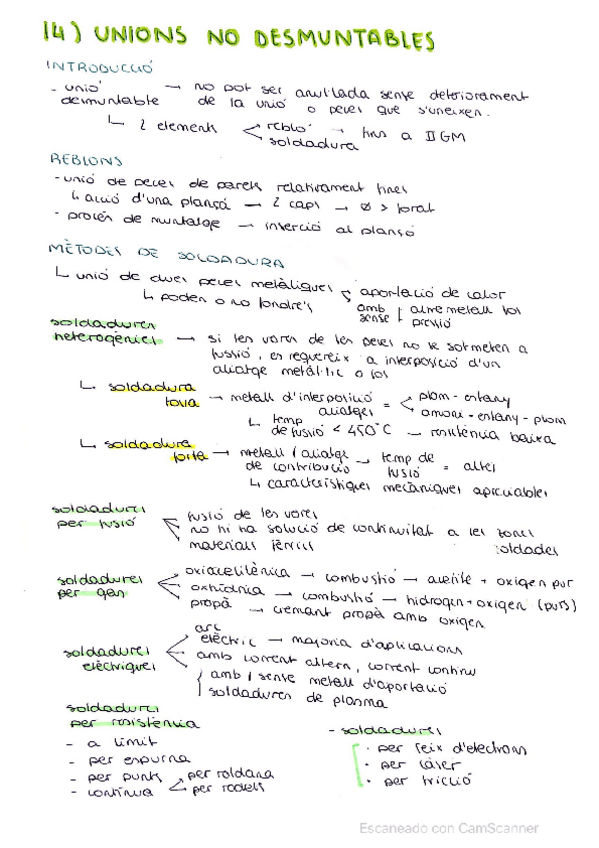 14) UNIONS NO DESMUNTABLES
INTRODUCCIÓ
- unió desmuntable → no pot ser anul·lada sense deteriorament
de la unió o peces que s'uneixen.
↳ 2 elements < rebló → fins a II GM
soldadura
REBLONS
- unió de peces de parets relativament fines
↳ acció d'una plançó → 2 caps → Ø > forat
- procés de muntatge → inserció al plançó
MÈTODES DE SOLDADURA
↳ unió de dues peces metàl·liques < aportació de calor
↳ poden o no fondre's
amb / sense altre metall fos
pressió
soldadures
heterogènies → si les vores de les peces no se sotmeten a
fusió, es requereix a interposició d'un
aliatge metàl·lic o fos
↳ soldadura
tova → metall d'interposició
aliatges = < plom - estany
estany - plom
↳ temp
de fusió < 450°C → resistència baixa
↳ soldadura
forta → metall / aliatge
de contribució → temp de
fusió = altes
↳ característiques mecàniques apreciables
soldadures
per fusió < fusió de les vores
no hi ha solució de continuïtat a les zones
soldades
materials fèrrics
soldadures
per gas < oxiacetilènica → combustió → acetilè + oxigen pur
oxhídrica → combustió → hidrogen + oxigen (purs)
propà → cremant propà amb oxigen
soldadures
elèctriques < arc
elèctric → majoria d'aplicacions
amb corrent altern, corrent continu
amb / sense metall d'aportació
soldadures de plasma
soldadures
per resistència
- a límit
- per espurna
- per punts
- contínua < per roldana
per rodets
- soldadures
· per feix d'electrons
· per làser
· per fricció
Escaneado con CamScanner